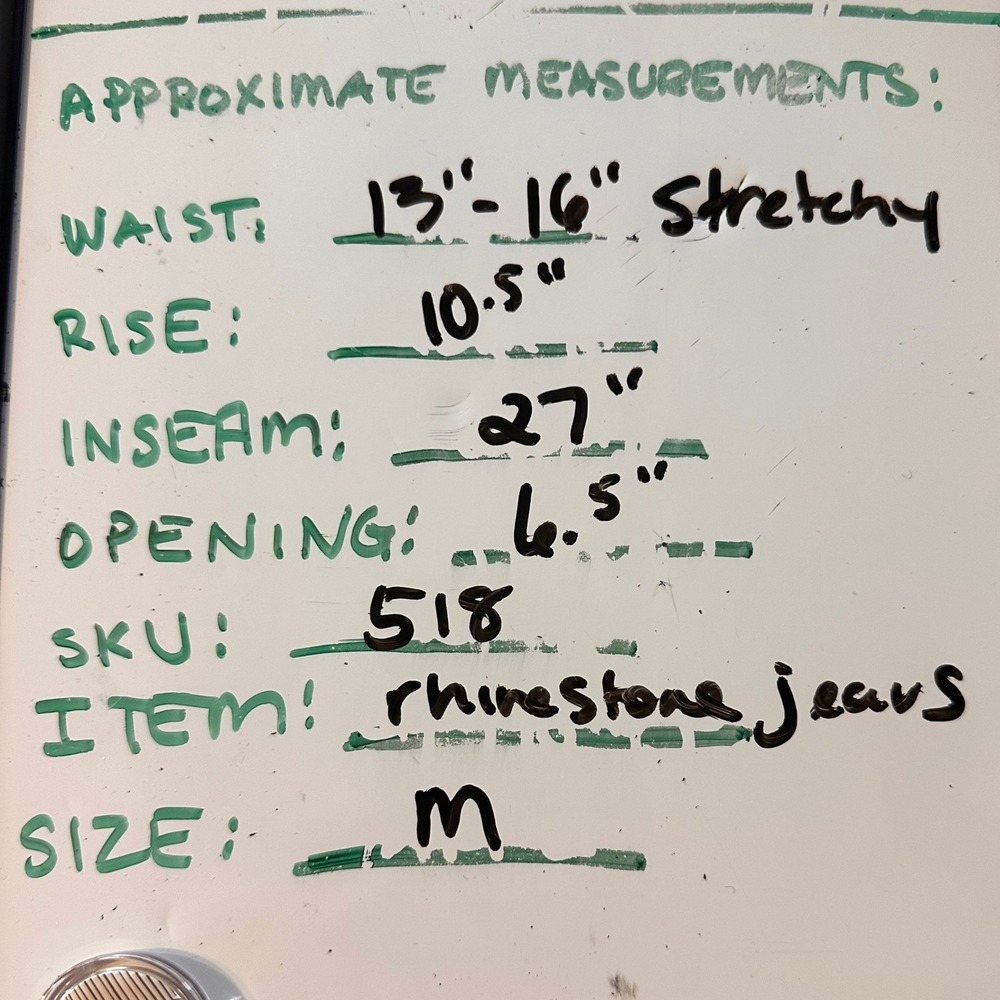 APPROXIMATE MEASUREMENTS:
WAIST: 13"-16" Stretchy
RISE: 10.5"
INSEAM: 27"
OPENING: 6.5"
SKU: 518
ITEM: rhinestone jeans
SIZE: M